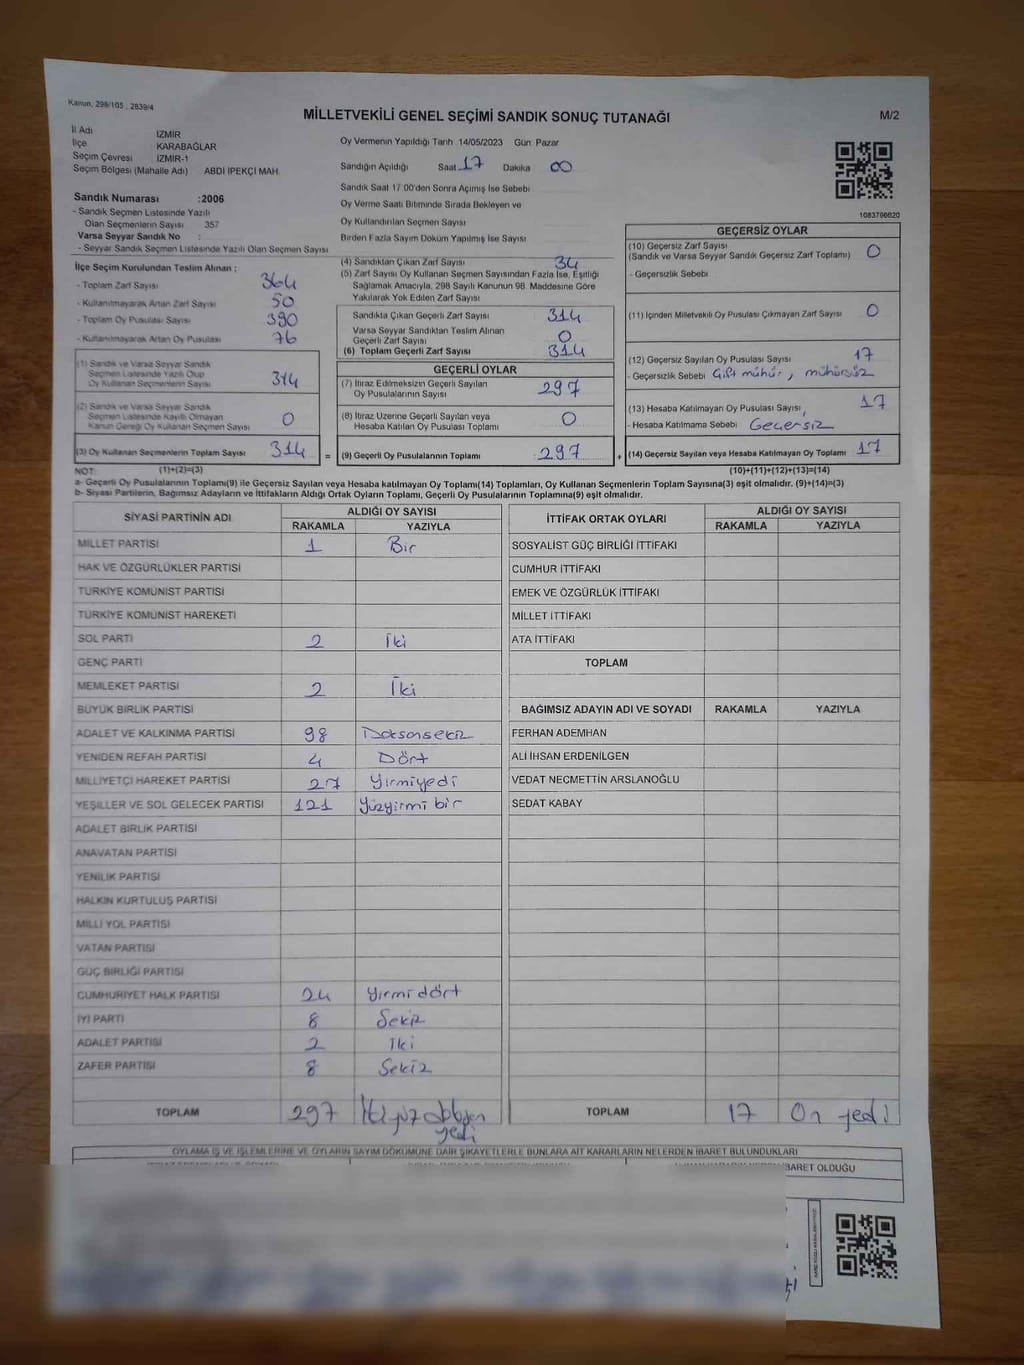 Kanun, 298/105 , 2839/4
MİLLETVEKİLİ GENEL SEÇİMİ SANDIK SONUÇ TUTANAĞI
M/2
İl Adı İZMİR
İlçe KARABAĞLAR
Seçim Çevresi İZMİR-1
Seçim Bölgesi (Mahalle Adı) ABDİ İPEKÇİ MAH.
Sandık Numarası :2006
- Sandık Seçmen Listesinde Yazılı
Olan Seçmenlerin Sayısı 357
Varsa Seyyar Sandık No :
- Seyyar Sandık Seçmen Listesinde Yazılı Olan Seçmen Sayısı
Oy Vermenin Yapıldığı Tarih 14/05/2023 Gün: Pazar
Sandığın Açıldığı Saat 17 Dakika 00
Sandık Saat 17:00'den Sonra Açımış İse Sebebi
Oy Verme Saati Bitiminde Sırada Bekleyen ve
Oy Kullandırılan Seçmen Sayısı
Birden Fazla Sayım Döküm Yapılmış İse Sayısı
1083796620
İlçe Seçim Kurulundan Teslim Alınan :
- Toplam Zarf Sayısı 364
- Kullanılmayarak Artan Zarf Sayısı 50
- Toplam Oy Pusulası Sayısı 390
- Kullanılmayarak Artan Oy Pusulası 76
(1) Sandık ve Varsa Seyyar Sandık
Seçmen Listesinde Yazılı Olup
Oy Kullanan Seçmenlerin Sayısı 314
(2) Sandık ve Varsa Seyyar Sandık
Seçmen Listesinde Kayıtlı Olmayan
Kanun Gereği Oy Kullanan Seçmen Sayısı 0
(3) Oy Kullanan Seçmenlerin Toplam Sayısı 314 =
(4) Sandıktan Çıkan Zarf Sayısı 34
(5) Zarf Sayısı Oy Kullanan Seçmen Sayısından Fazla İse, Eşitliği
Sağlamak Amacıyla, 298 Sayılı Kanunun 98. Maddesine Göre
Yakılarak Yok Edilen Zarf Sayısı
Sandıkta Çıkan Geçerli Zarf Sayısı 314
Varsa Seyyar Sandıktan Teslim Alınan
Geçerli Zarf Sayısı 0
(6) Toplam Geçerli Zarf Sayısı 314
GEÇERLİ OYLAR
(7) İtiraz Edilmeksizin Geçerli Sayılan
Oy Pusulasının Sayısı 297
(8) İtiraz Üzerine Geçerli Sayılan veya
Hesaba Katılan Oy Pusulası Toplamı 0
(9) Geçerli Oy Pusulalarının Toplamı 297 +
GEÇERSİZ OYLAR
(10) Geçersiz Zarf Sayısı
(Sandık ve Varsa Seyyar Sandık Geçersiz Zarf Toplamı) 0
- Geçersizlik Sebebi
(11) İçinden Milletvekili Oy Pusulası Çıkmayan Zarf Sayısı 0
(12) Geçersiz Sayılan Oy Pusulası Sayısı 17
- Geçersizlik Sebebi Çift mühür, mühürsüz
(13) Hesaba Katılmayan Oy Pusulası Sayısı 17
- Hesaba Katılmama Sebebi Geçersiz
(14) Geçersiz Sayılan veya Hesaba Katılmayan Oy Toplamı 17
NOT: (1)+(2)=(3) (10)+(11)+(12)+(13)=(14)
a- Geçerli Oy Pusulalarının Toplamı(9) ile Geçersiz Sayılan veya Hesaba Katılmayan Oy Toplamı(14) Toplamları, Oy Kullanan Seçmenlerin Toplam Sayısına(3) eşit olmalıdır. (9)+(14)=(3)
b- Siyasi Partilerin, Bağımsız Adayların ve İttifakların Aldığı Ortak Oyların Toplamı, Geçerli Oy Pusulalarının Toplamına(9) eşit olmalıdır.
SİYASİ PARTİNİN ADI ALDIĞI OY SAYISI
RAKAMLA YAZIYLA
MİLLET PARTİSİ 1 Bir
HAK VE ÖZGÜRLÜKLER PARTİSİ
TÜRKİYE KOMÜNİST PARTİSİ
TÜRKİYE KOMÜNİST HAREKETİ
SOL PARTİ 2 İki
GENÇ PARTİ
MEMLEKET PARTİSİ 2 İki
BÜYÜK BİRLİK PARTİSİ
ADALET VE KALKINMA PARTİSİ 98 Doksansekiz
YENİDEN REFAH PARTİSİ 4 Dört
MİLLİYETÇİ HAREKET PARTİSİ 27 Yirmiyedi
YEŞİLLER VE SOL GELECEK PARTİSİ 121 Yüzyirmi bir
ADALET BİRLİK PARTİSİ
ANAVATAN PARTİSİ
YENİLİK PARTİSİ
HALKIN KURTULUŞ PARTİSİ
MİLLİ YOL PARTİSİ
VATAN PARTİSİ
GÜÇ BİRLİĞİ PARTİSİ
CUMHURİYET HALK PARTİSİ 24 Yirmi dört
İYİ PARTİ 8 Sekiz
ADALET PARTİSİ 2 İki
ZAFER PARTİSİ 8 Sekiz
TOPLAM 297 İki yüz doksan
yedi
İTTİFAK ORTAK OYLARI ALDIĞI OY SAYISI
RAKAMLA YAZIYLA
SOSYALİST GÜÇ BİRLİĞİ İTTİFAKI
CUMHUR İTTİFAKI
EMEK VE ÖZGÜRLÜK İTTİFAKI
MİLLET İTTİFAKI
ATA İTTİFAKI
TOPLAM
BAĞIMSIZ ADAYIN ADI VE SOYADI RAKAMLA YAZIYLA
FERHAN ADEMHAN
ALİ İHSAN ERDENİLGEN
VEDAT NECMETTİN ARSLANOĞLU
SEDAT KABAY
TOPLAM 17 On yedi
OYLAMA İŞ VE İŞLEMLERİNE VE OYLARIN SAYIM DÖKÜMÜNE DAİR ŞİKAYETLERLE BUNLARA AİT KARARLARIN NELERDEN İBARET BULUNDUKLARI
BARET OLDUĞU